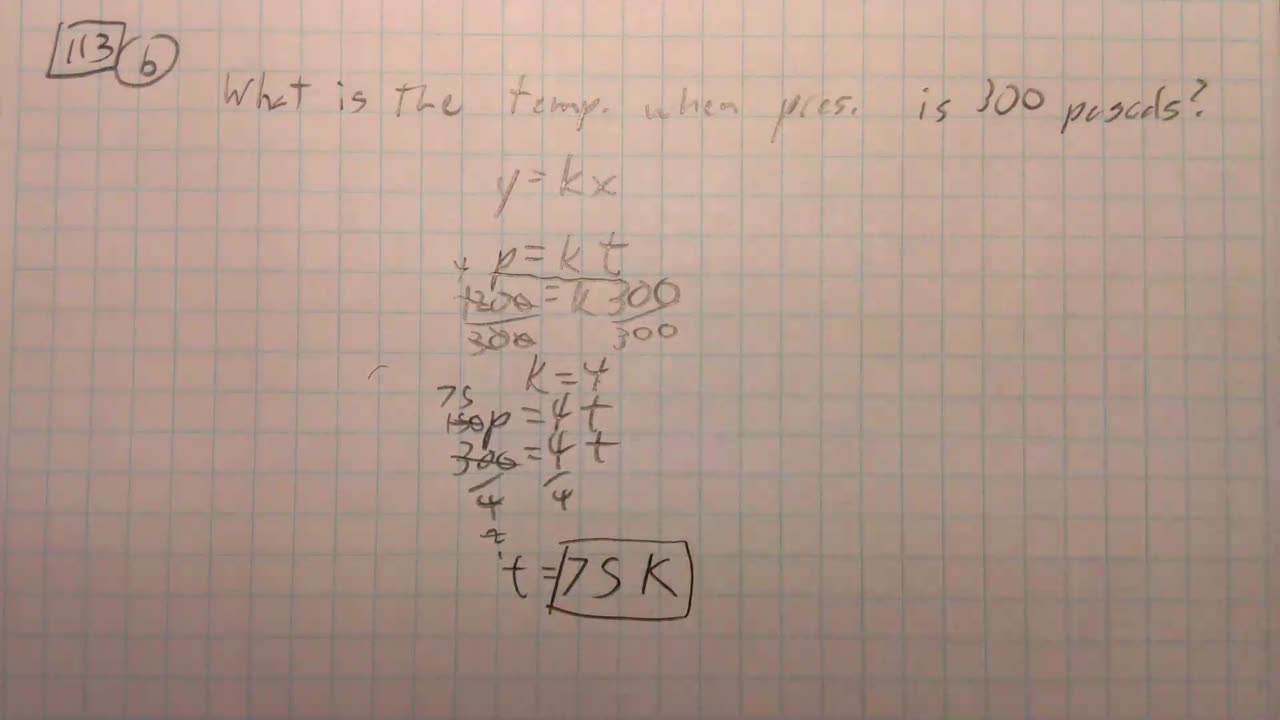 113 b
What is the temp. when pres. is 300 pascals?
y = kx
p = k t
4
1200 = k 300
300 300
k = 4
75
150 p = 4 t
300 = 4 t
4 4
2
t = 75 K